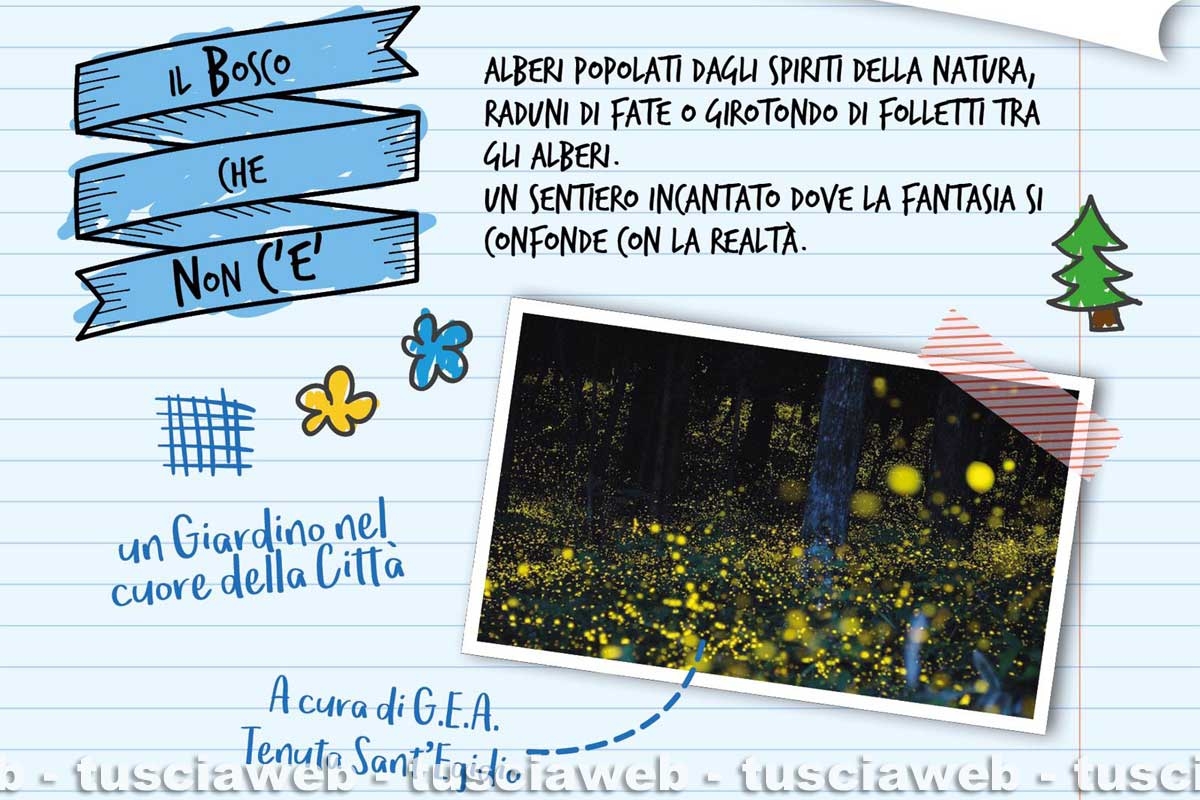 IL BOSCO
CHE
NON C'E'
ALBERI POPOLATI DAGLI SPIRITI DELLA NATURA,
RADUNI DI FATE O GIROTONDO DI FOLLETTI TRA
GLI ALBERI.
UN SENTIERO INCANTATO DOVE LA FANTASIA SI
CONFONDE CON LA REALTÀ.
un Giardino nel
cuore della Città
A cura di G.E.A.
Tenuta Sant'Egidio
b - tusciaweb - tusciaweb - tusciaweb - tusc